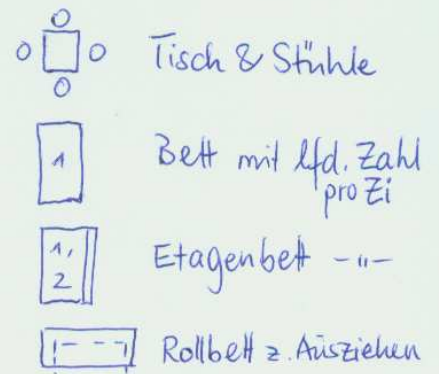 Tisch & Stühle
1
Bett mit lfd. Zahl
pro Zi
1,
2
Etagenbett -"-
Rollbett z. Ausziehen